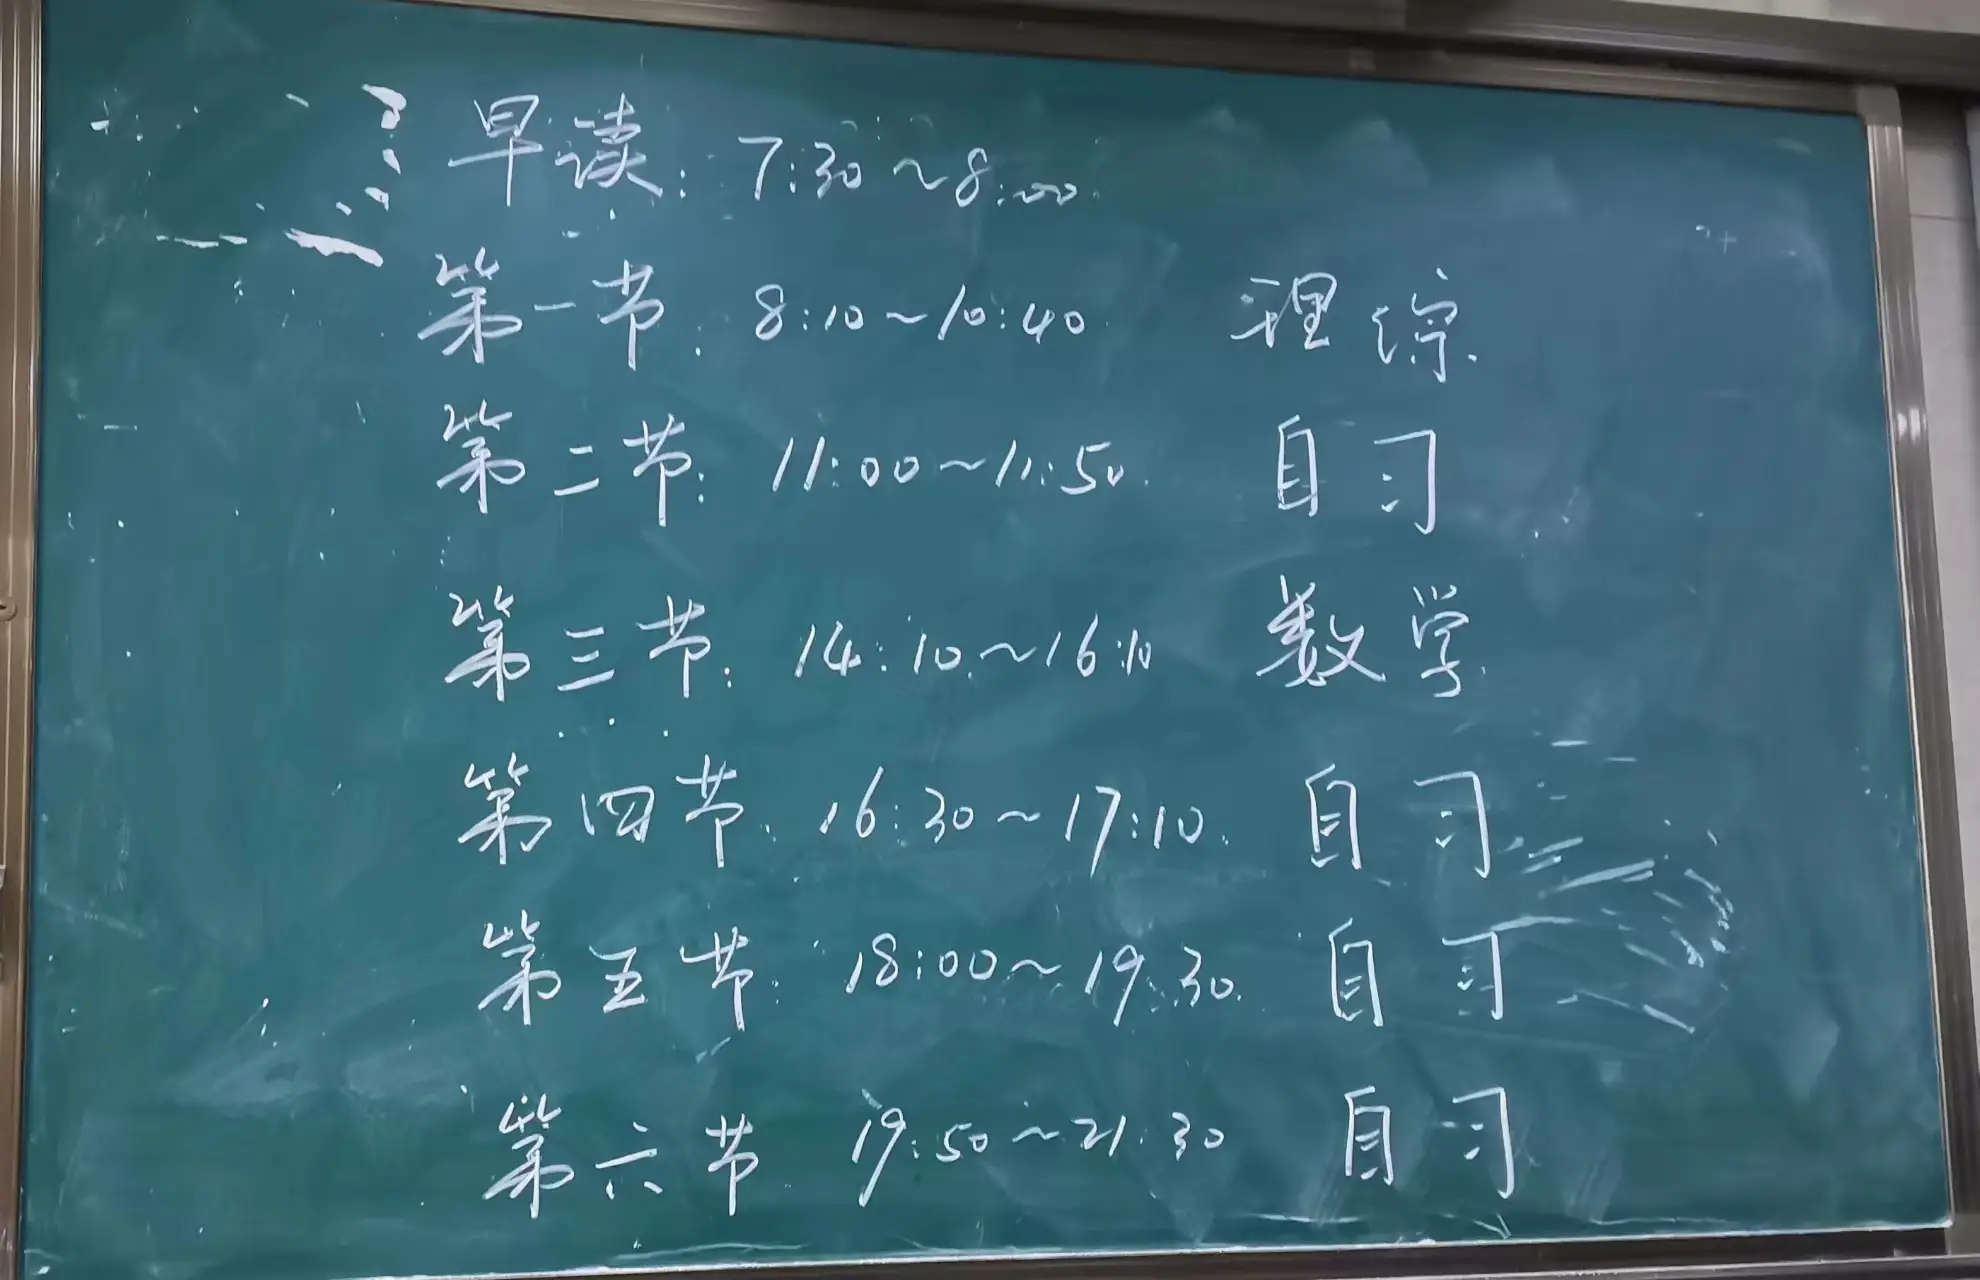 早读: 7:30~8:00
第一节: 8:10~10:40 理综
第二节: 11:00~11:50 自习
第三节: 14:10~16:10 数学
第四节: 16:30~17:10 自习
第五节: 18:00~19:30 自习
第六节 19:50~21:30 自习